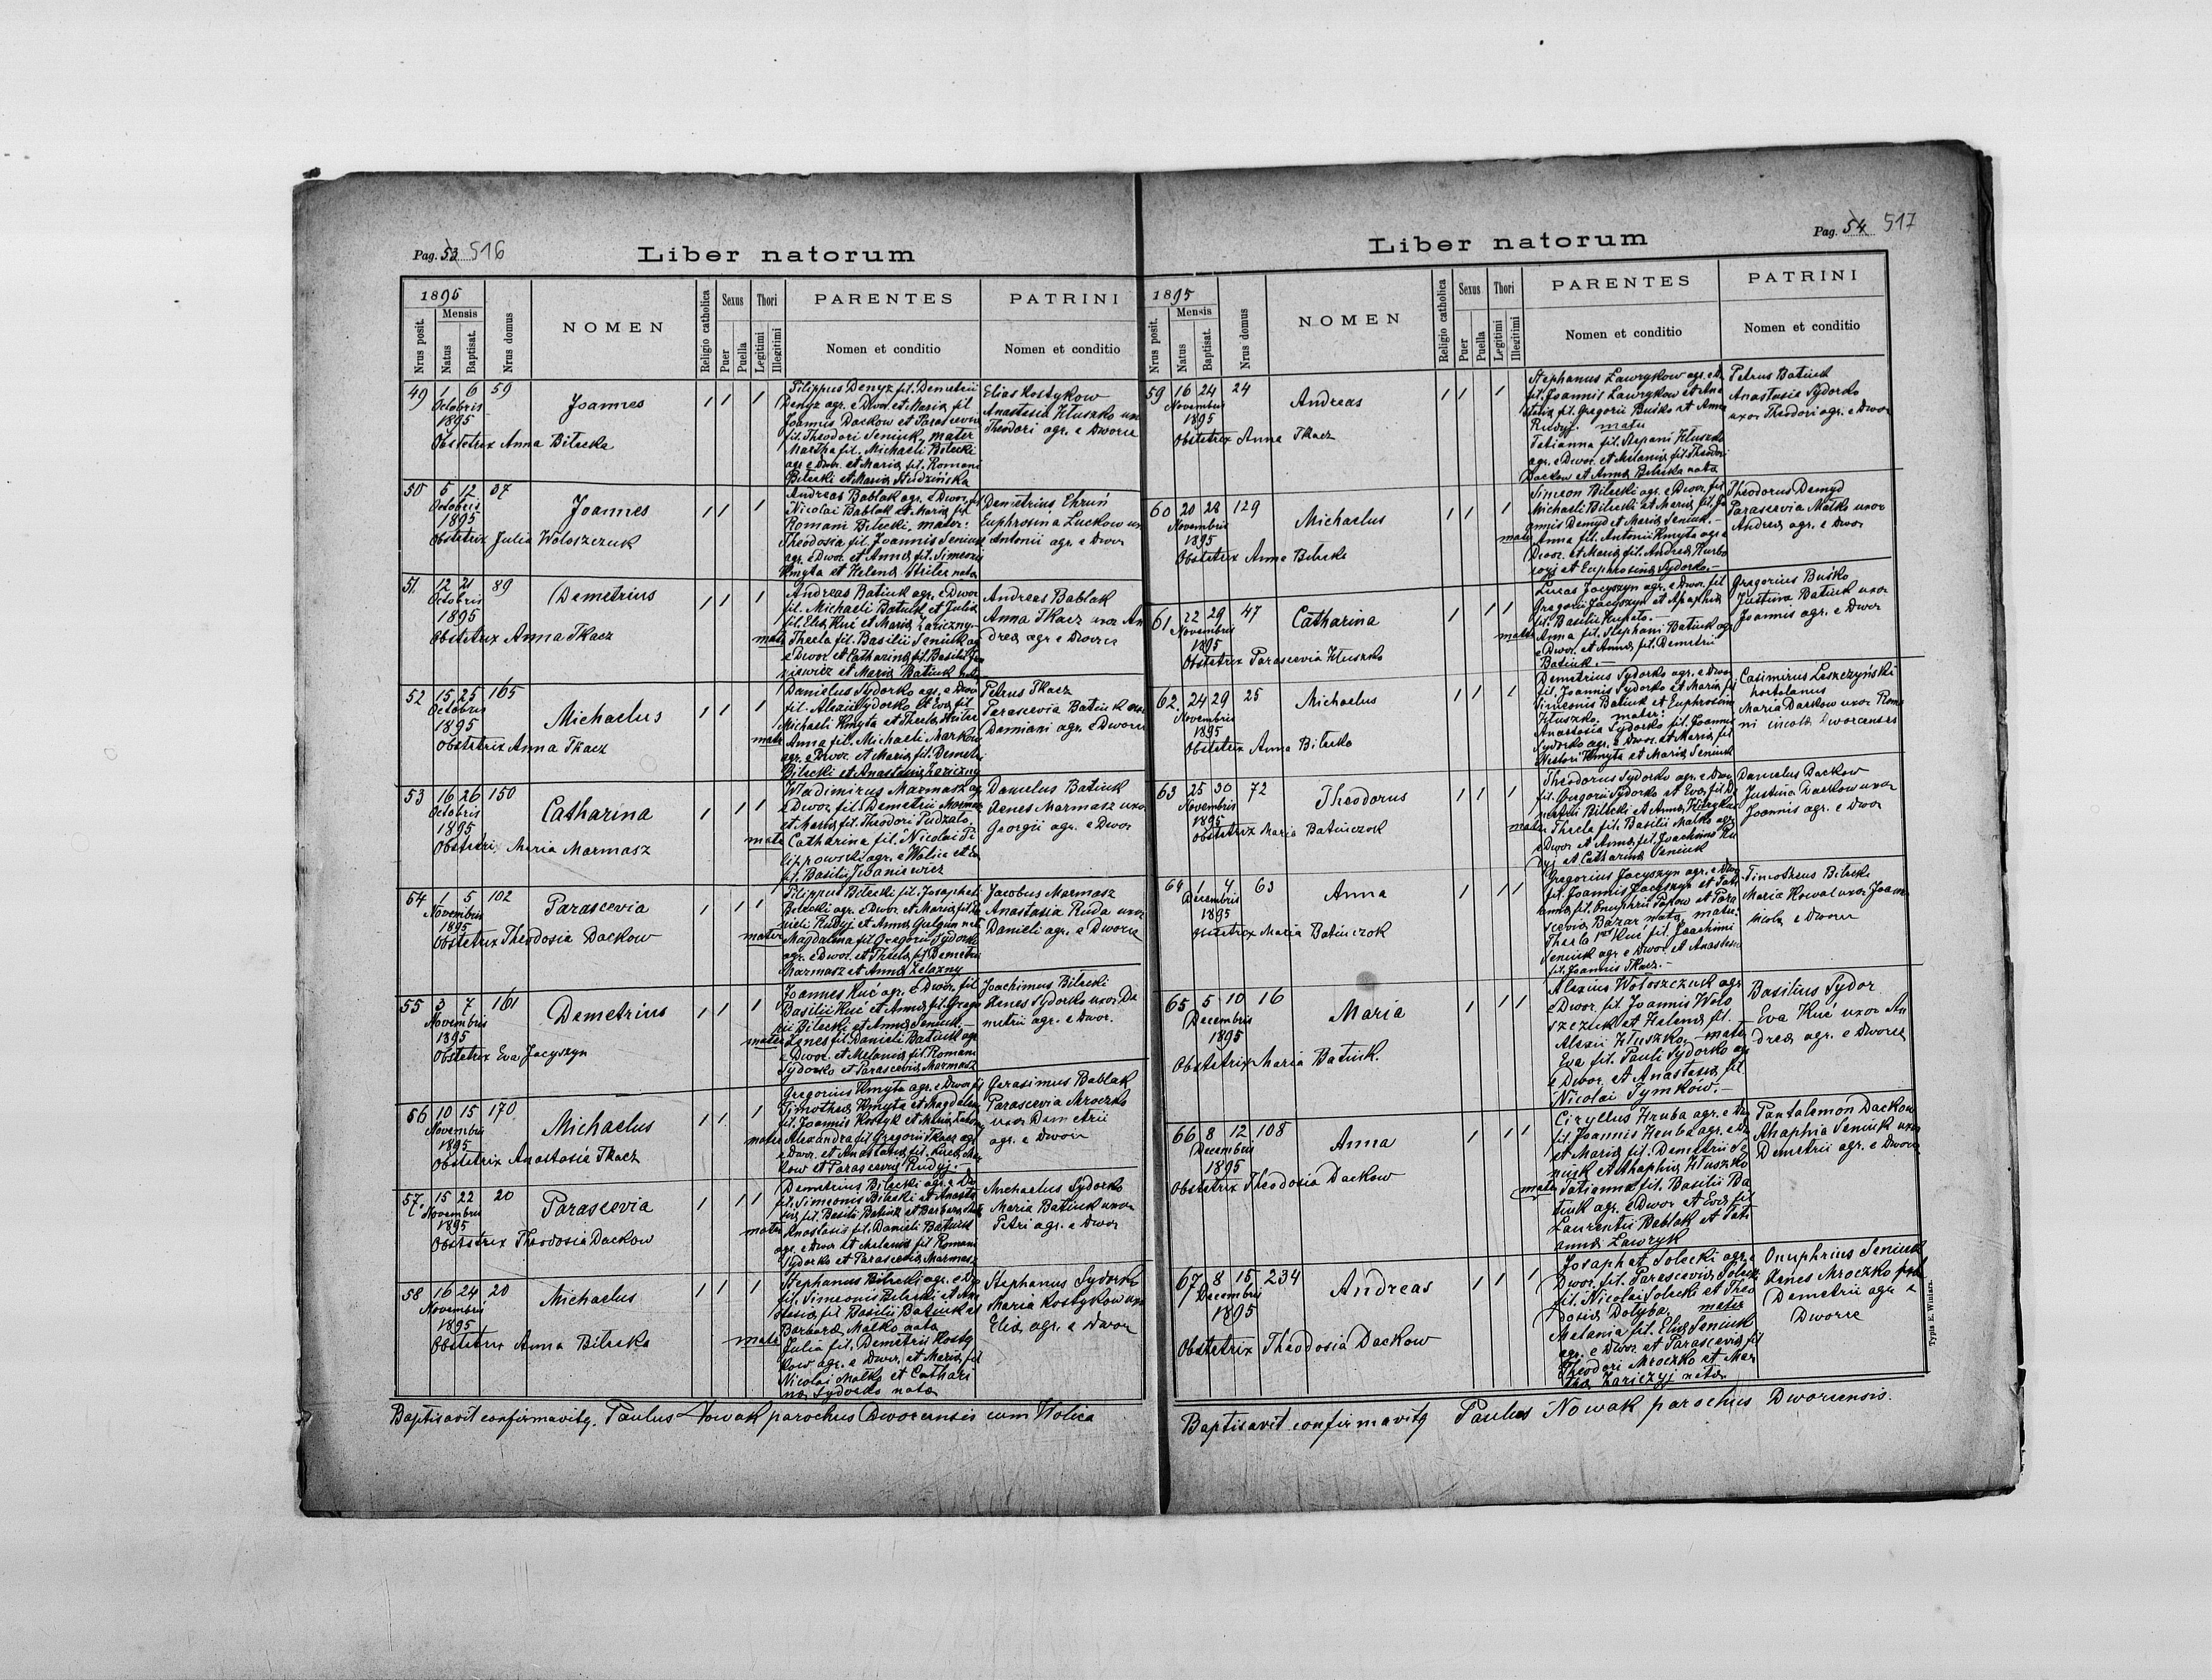 Pag. 53 516
Liber natorum
1895
Mensis
Nrus posit.
Natus
Baptisat.
Nrus domus
NOMEN
Religio catholica
Sexus
Puer
Puella
Thori
Legitimi
Illegitimi
PARENTES
Nomen et conditio
PATRINI
Nomen et conditio
49 1 6 59
Octobris
1895
Joannes
Obstetrix Anna Bilecka
Filippus Denyz fil. Demetrii
Denyz agr. e Dwor. et Maria fil
Joannis Dackow et Parascevia
fil. Theodori Seniuk, mater
Martha fil. Michaeli Bilecki
agr e Dwor. et Maria fil. Romani
Bilecki et Maria
Elias Kostykow
Anastasia Hluszko uxor
Theodori agr. e Dworce
50 5 12 37
Octobris
1895
Joannes
Obstetrix Julia Woloszczuk
Andreas Bablak agr. e Dwor. fil
Nicolai Bablak et Maria fil
Romani Bilecki, mater:
Theodosia fil. Joannis Seniuk
agr. e Dwor. et Anna fil. Simeonis
Kmyta et Helena nata
Demetrius
Euphrosina Luckow uxor
Antonii agr. e Dwor
51. 12 21 89
Octobris
1895
Demetrius
Obstetrix Anna Tkacz
Andreas Batiuk agr. e Dwor
fil. Michaeli Batiuk et Julia
fil. Elia Kuć et Maria Zariczny.-
mater Thecla fil. Basilii Seniuk agr
e Dwor. et Catharina fil. Basilii
et Maria Batiuk nata
Andreas Bablak
Anna Tkacz uxor An
drea agr. e Dworce
52 15 25 165
Octobris
1895
Michaelus
Obstetrix Anna Tkacz
Danielus Sydorko agr. e Dwor
fil. Alexii Sydorko et Eva fil
Michaeli Kmyta et Thecla
mater Anna fil. Michaeli Markow
agr. e Dwor. et Maria fil. Demetri
Bilecki et Anastasia Zariczny
Petrus Tkacz
Parascevia Batiuk uxor
Damiani agr. e Dworce
53 16 26 150
Octobris
1895
Catharina
Obstetri. Maria Marmasz
Wladimirus Marmasz agr
e Dwor. fil. Demetrii Marmasz
et Maria fil. Theodori Pudzalo.
mater Catharina fil. Nicolai Fi
lippowski agr. e Wolica et Eva
fil. Basilii Iwaniewicz
Danielus Batiuk
Agnes Marmasz uxor
Georgii agr. e Dwor
54 1 5 102
Novembris
1895
Parascevia
Obstetrix Theodosia Dackow
Filippus Bilecki fil. Josaphati
Bilecki agr. e Dwor. et Maria fil. Da
nieli Rudyj et Anna nata
mater Magdalena fil. Gregorii Sydorko
agr. e Dwor. et Thecla fil. Demetrii
Marmasz et Anna Zelazny
Jacobus Marmasz
Anastasia Ruda uxor
Danieli agr. e Dworce
55 3 7 161
Novembris
1895
Demetrius
Obstetrix Eva Jacyszyn
Joannes Kuć agr. e Dwor. fil
Basilii Kuć et Anna fil. Grego
rii Bilecki et Anna Seniuk.-
mater Agnes fil. Danieli Batiuk agr
e Dwor. et Melania fil. Romani
Sydorko et Parascevia Marmasz
Joachimus Bilecki
Agnes Sydorko uxor De
metrii agr. e Dwor.
56 10 15 170
Novembris
1895
Michaelus
Obstetrix Anastasia Tkacz
Gregorius Kmyta agr. e Dwor. fil
Timothea Kmyta et Magdalena
fil. Joannis Kostyk et Maria
mater Alexandra fil. Gregorii Tkacz agr
e Dwor. et Anastasia fil.
et Parascevia Rudyj.-
Gerasimus Bablak
Parascevia Mroczko
uxor Demetrii
agr. e Dworce
57. 15 22 20
Novembris
1895
Parascevia
Obstetrix Theodosia Dackow
Demetrius Bilecki agr. e Dw
fil. Simeonis Bilecki et Anasta
sia fil. Basilii Batiuk et Barbara
mater Anastasia fil. Danieli Batiuk
agr. e Dwor et Melania fil Romani
Sydorko et Parascevia Marmasz
Michaelus Sydorko
Maria Batiuk uxor
Petri agr. e Dwor
58 16 24 20
Novembris
1895
Michaelus
Obstetrix Anna Bilecka
Stephanus Bilecki agr. e Dw
fil. Simeonis Bilecki et Ana
stasia fil Basilii Batiuk et
Barbara Matko nata
mater Julia fil. Demetrii Kosty
kow agr. e Dwor. et Maria fil
Nicolai Matko et Cathari
na Sydorko nata
Stephanus Sydorko
Maria Kostykow uxor
Elia agr. e Dwor
Baptisavit confirmavitq. Paulus Nowak parochus Dworcensis cum Wolica
Pag. 54 517
Liber natorum
1895
Mensis
Nrus posit.
Natus
Baptisat.
Nrus domus
NOMEN
Religio catholica
Sexus
Puer
Puella
Thori
Legitimi
Illegitimi
PARENTES
Nomen et conditio
PATRINI
Nomen et conditio
59 16 24 24
Novembris
1895
Andreas
Obstetrix Anna Tkacz
Stephanus Lawrykow agr. e D
fil. Joannis Lawrykow et Ana
stasia fil. Gregorii Buśko et Anna
Rudyj. mater
Tatianna fil. Stepani Hluszko
agr. e Dwor. et Melania fil Theodori
Dackow et Anna Bilecka nata
Petrus Batiuk
Anastasia Sydorko
uxor Theodori agr. e Dwor
60 20 28 129
Novembris
1895
Michaelus
Obstetrix Anna Bilecka
Simeon Bilecki agr. e Dwor. fil
Michaeli Bilecki et Maria fil. Jo
annis Demyd et Maria Seniuk.-
mater Anna fil. Antonii Kmyta agr e
Dwor. et Maria fil. Andrea Kurbo
et Euphrosina Sydorko.-
Theodorus Demyd
Parascevia Matko uxor
Andrea agr. e Dwor
61. 22 29 47
Novembris
1895
Catharina
Obstetrix Parascevia Hluszko
Lucas Jacyszyn agr. e Dwor. fil
Gregorii Jacyszyn et Ahaphia
fil. Basilii
mater Anna fil. Stephani Batiuk agr
e Dwor. et Anna fil. Demetrii
Batiuk.-
Gregorius Buśko
Justina Batiuk uxor
Joannis agr. e Dwor
62. 24 29 25
Novembris
1895
Michaelus
Obstetrix Anna Bilecka
Demetrius Sydorko agr. e Dwor
fil. Joannis Sydorko et Maria fil
Simeonis Batiuk et Euphrosina
Hluszko. mater:
Anastasia Sydorko fil. Joannis
Sydorko agr. e Dwor. et Maria fil
Nestori Kmyta et Maria Seniuk
Casimirus Leszczyński
hortolanus
Maria Dackow uxor Roma
ni incola Dworcensis
63 25 30 72
Novembris
1895
Theodorus
Obstetrix Maria Batiuczok
Theodorus Sydorko agr. e Dwor
fil. Gregorii Sydorko et Eva fil. De
metrii Bilecki et Anna
mater Thecla fil. Basilii Matko agr
e Dwor et Anna fil. Joachimi Ru
dyj et Catharina Seniuk
Danielus Dackow
Justina Dackow uxor
Joannis agr. e Dwor
64 1 4 63
Decembris
1895
Anna
Obstetrix Maria Batiuczok
Gregorius Jacyszyn agr. e Dwor
fil. Joannis Jacyszyn et Tati
anna fil. Onuphrii Popow et Para
scevia Bazar nata, mater:
Thecla Kuć fil. Joachimi
Seniuk agr. e Dwor. et Anastasia
fil. Joannis Tkacz.-
Timotheus Bilecki
Maria Kowal uxor Joan
incola e Dworce
65 5 10 16
Decembris
1895
Maria
Obstetrix Maria Batiuk.
Alexius Woloszczuk agr
e Dwor. fil Joannis Wolo
szczuk et Helena fil.
Alexii Hluszko.- mater
Eva fil. Pauli Sydorko agr
e Dwor. et Anastasia fil
Nicolai Tymków.-
Basilius Sydor
Eva Kuć uxor An
drea agr. e Dworce
66 8 12 108
Decembris
1895
Anna
Obstetrix Theodosia Dackow
Ciryllus Hruba agr. e Dw
fil. Joannis Hruba agr. e Dw
et Maria fil. Demetrii Se
niuk et Ahaphia Hluszko
mater Tatianna fil. Basilii Ba
tiuk agr. e Dwor et Eva fil
Laurentii Bablak et Tati
anna Lawryk
Pantalemon Dackow
Ahaphia Seniuk uxor
Demetrii agr. e Dworce
67 8 15 234
Decembris
1895
Andreas
Obstetrix Theodosia Dackow
Josaphat Solecki agr. e
Dwor. fil. Parascevia Solecki
fil. Nicolai Solecki et Theo
dosia Dotyba. mater
Melania fil. Elia Seniuk
agr. e Dwor et Parascevia fil
Theodori Mroczko et Mar
tha Zariczyj nata
Onuphrius Seniuk
Agnes Mroczko
Demetrii agr e
Dworce
Baptisavit confirmavitq Paulus Nowak parochus Dworcensis.
Typis E. Winiarz.